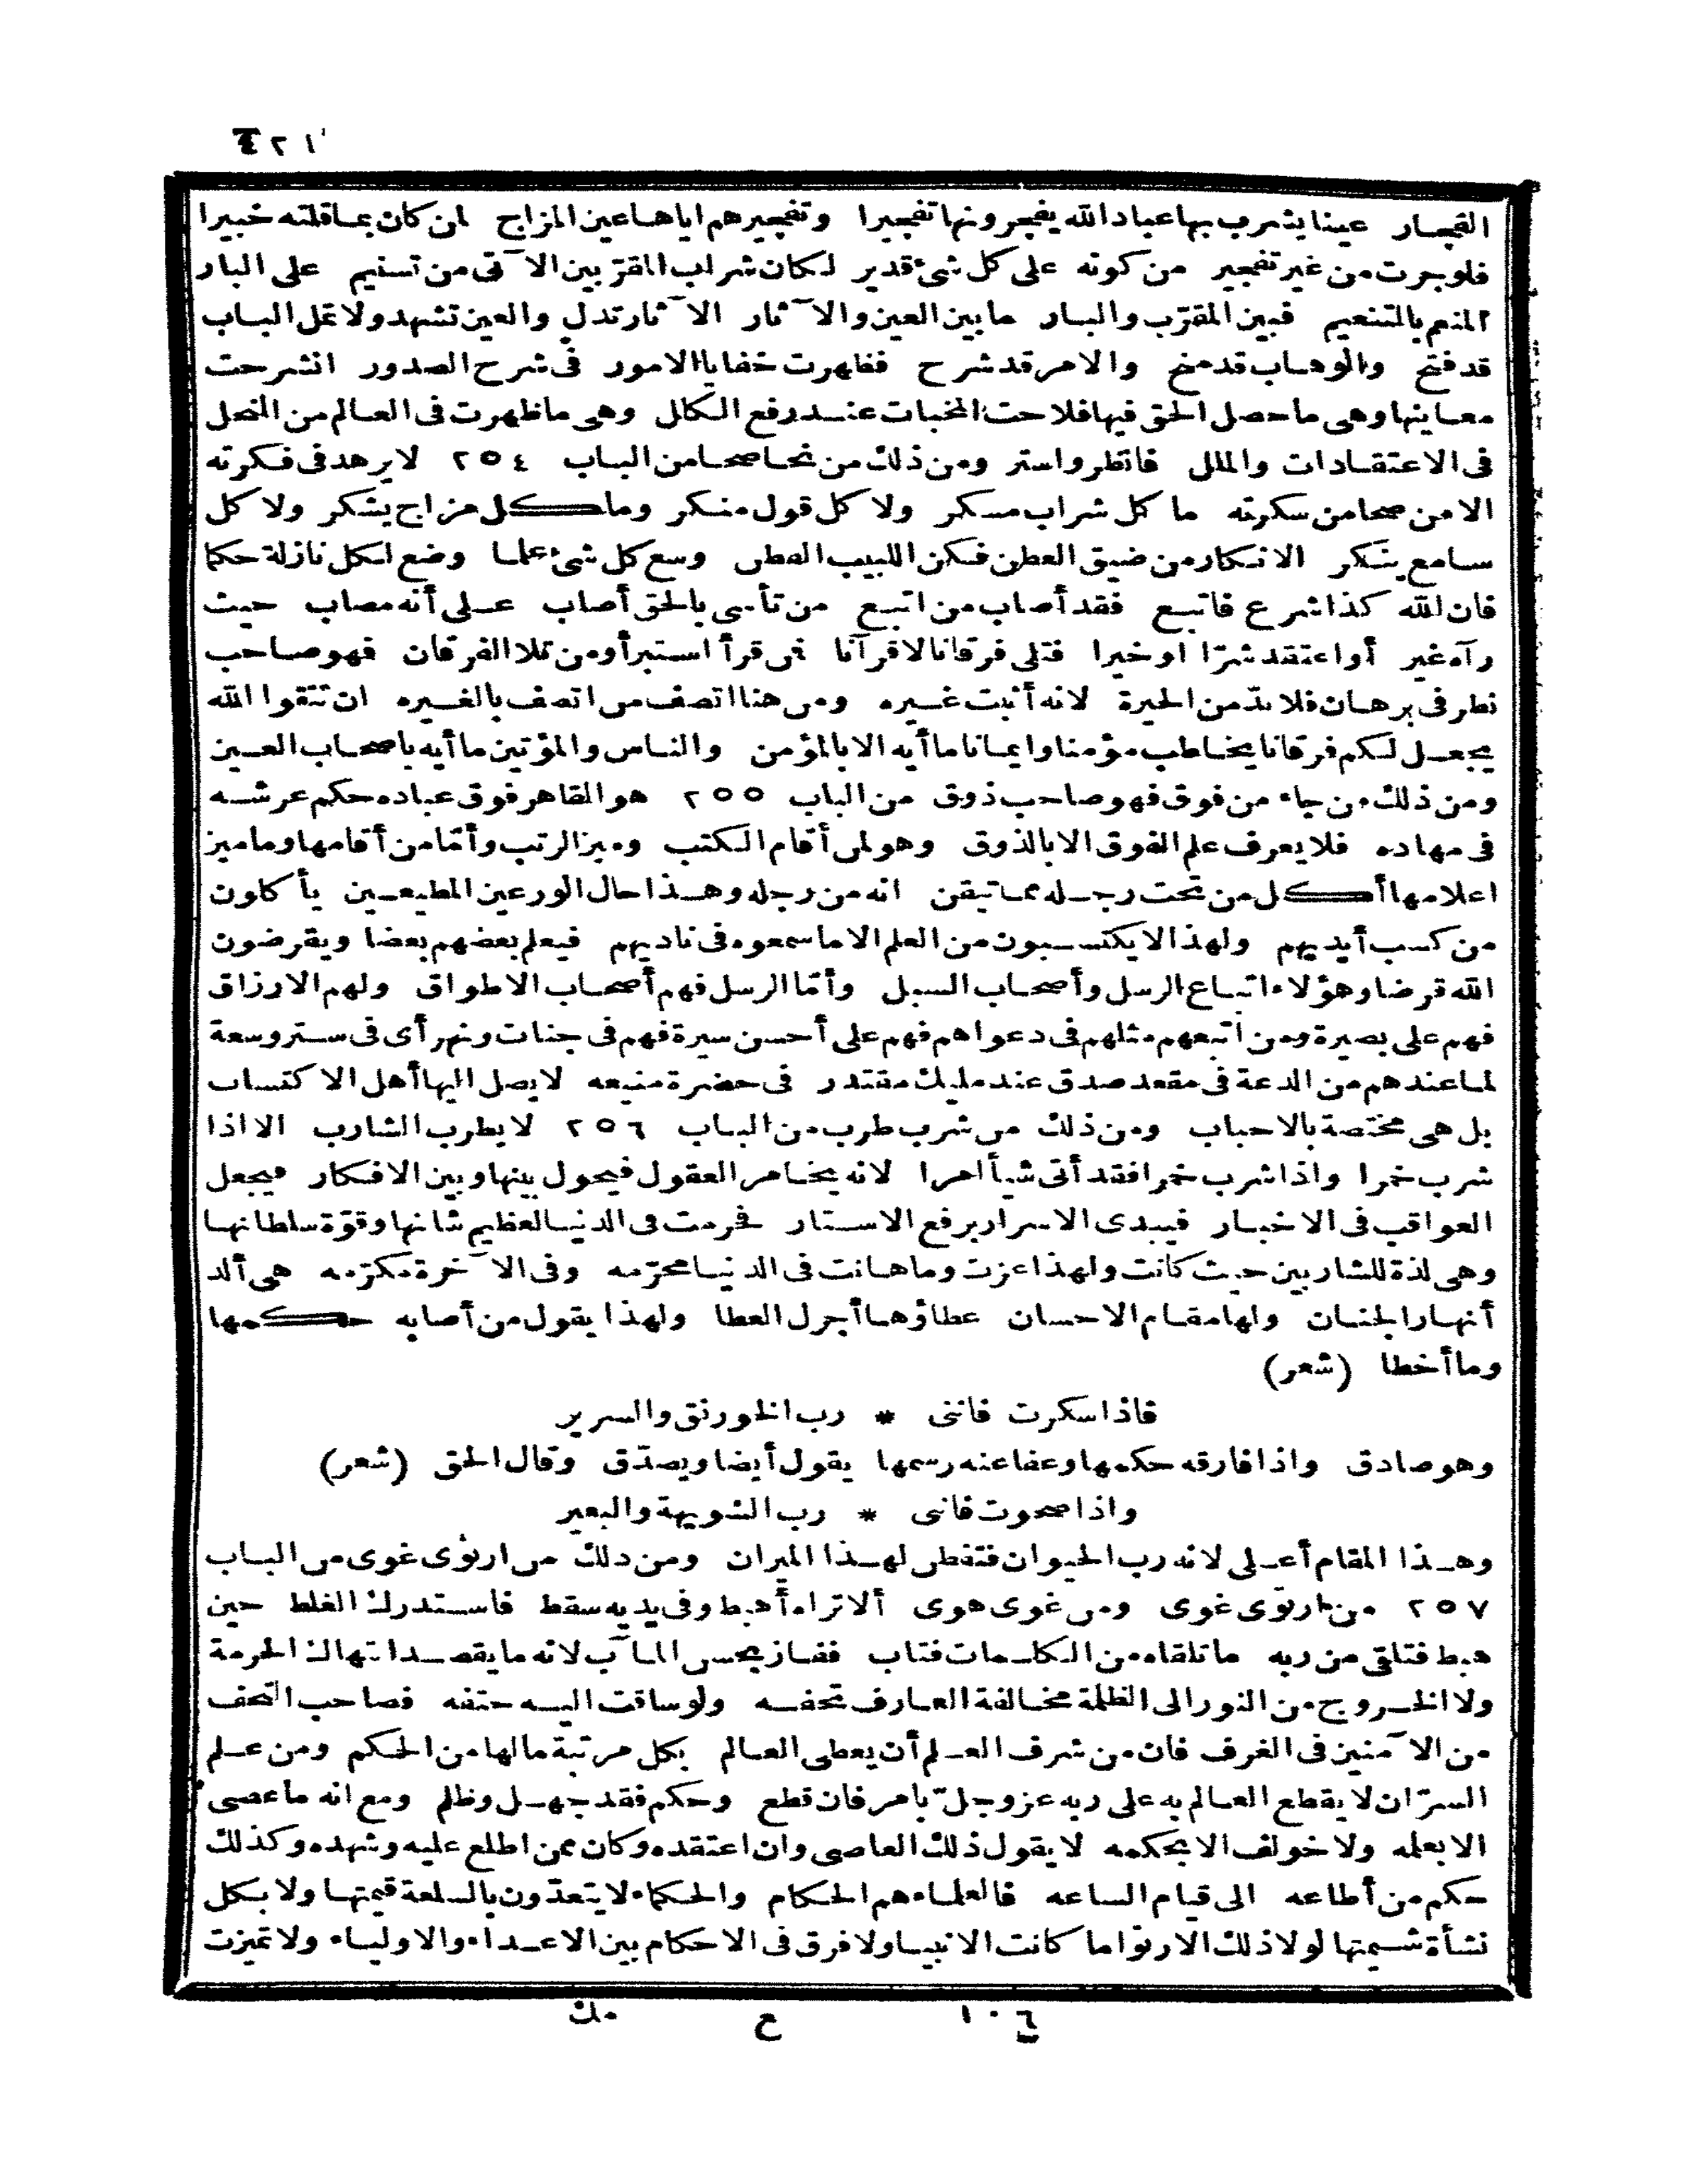 الفجار عينا يشرب بها عباد الله يفجرونها تفجيرا وتفجيرهم اياها عين المزاج لمن كان بما قلته خبيرا
فلوجرت من غير تفجير من كونه على كل شئ قدير لكان شراب المقرّبين الآتى من تسنيم على البار
المنعم بالتنعيم فبين المقرّب والبار ما بين العين والآثار الآثار تدل والعين تشهد ولا تمل الباب
قد فتح والوهاب قد منح والامر قد شرح فظهرت خفايا الامور فى شرح الصدور انشرحت
معاينها وهى ما حصل الحق فيها فلاحت المخبات عند رفع الكلل وهى ما ظهرت فى العالم من النحل
فى الاعتقادات والملل فانظر واستر ومن ذلك من نحا صحا من الباب ٢٥٤ لا يزهد فى فكرته
الا من صحا من سكرته ما كل شراب مسكر ولا كل قول منكر وما كل مزاج يشكر ولا كل
سامع ينكر الانكار من ضيق العطن فكن اللبيب الفطن وسع كل شئ علما وضع لكل نازلة حكما
فان الله كذا شرع فاتبع فقد أصاب من اتبع من تأسى بالحق أصاب على أنه مصاب حيث
رآه غير أو اعتقد شرّا او خيرا فتلى فرقانا لا قرآنا فمن قرأ استبرأ ومن تلا الفرقان فهو صاحب
نظر فى برهان فلا بدّ من الحيرة لانه أثبت غيره ومن هنا اتصف من اتصف بالغيره ان تتقوا الله
يجعل لكم فرقانا يخاطب مؤمنا وايمانا ما أيه الا بالمؤمن والناس والمؤتين ما أيه باصحاب العين
ومن ذلك من جاء من فوق فهو صاحب ذوق من الباب ٢٥٥ هو القاهر فوق عباده حكم عرشه
فى مهاده فلا يعرف علم الفوق الا بالذوق وهو لمن أقام الكتب وميز الرتب وأمّا من أقامها وما ميز
اعلامها أكل من تحت رجله مما تيقن انه من رجله وهذا حال الورعين المطيعين يأكلون
من كسب أيديهم ولهذا لا يكتسبون من العلم الا ما سمعوه فى ناديهم فيعلم بعضهم بعضا ويقرضون
الله قرضا وهؤلاء اتباع الرسل وأصحاب السبل وأمّا الرسل فهم أصحاب الاطواق ولهم الارزاق
فهم على بصيرة ومن اتبعهم مثلهم فى دعواهم فهم على أحسن سيرة فهم فى جنات ونهر أى فى ستر وسعة
لما عندهم من الدعة فى مقعد صدق عند مليك مقتدر فى حضرة منيعه لا يصل اليها أهل الاكتساب
بل هى مختصة بالاحباب ومن ذلك من شرب طرب من الباب ٢٥٦ لا يطرب الشارب الا اذا
شرب خمرا واذا شرب خمرا فقد أتى شيأ امرا لانه يخامر العقول فيحول بينها وبين الافكار فيجعل
العواقب فى الاخبار فيبدى الاسرار برفع الاستار فحرمت فى الدنيا لعظيم شانها وقوّة سلطانها
وهى لذة للشاربين حيث كانت ولهذا عزت وما هانت فى الدنيا محرّمه وفى الآخرة مكرّمه هى ألذ
أنهار الجنان ولها مقام الاحسان عطاؤها أجزل العطا ولهذا يقول من أصابه حكمها
وما أخطا (شعر)
فاذا سكرت فاننى * رب الخورنق والسرير
وهو صادق واذا فارقه حكمها وعفا عنه رسمها يقول أيضا ويصدّق وقال الحق (شعر)
واذا صحوت فاننى * رب الشويهة والبعير
وهذا المقام أعلى لانه رب الحيوان فتفطن لهذا الميزان ومن ذلك من ارتوى غوى من الباب
٢٥٧ من ارتوى غوى ومن غوى هوى ألا تراه أهبط وفى يديه سقط فاستدرك الغلط حين
هبط فتلقى من ربه ما تلقاه من الكلمات فتاب ففاز بحسن المآب لانه ما يقصد انتهاك الحرمة
ولا الخروج من النور الى الظلمة مخالفة العارف تحفه ولو ساقت اليه حتفه فصاحب التحف
من الآمنين فى الغرف فان من شرف العلم أن يعطى العالم بكل مرتبة ما لها من الحكم ومن علم
السرّ ان لا يقطع العالم به على ربه عز وجلّ بامر فان قطع وحكم فقد جهل وظلم ومع انه ما عصى
الا بعلمه ولا خولف الا بحكمه لا يقول ذلك العاصى وان اعتقده وكان ممن اطلع عليه وشهده وكذلك
حكم من أطاعه الى قيام الساعه فالعلماء هم الحكام والحكماء لا يتعدّون بالسلعة قيمتها ولا بكل
نشأة شيمتها لولا ذلك الارتواما كانت الانبيا ولا فرق فى الاحكام بين الاعداء والاولياء ولا تميزت
١٠٦ ح مك